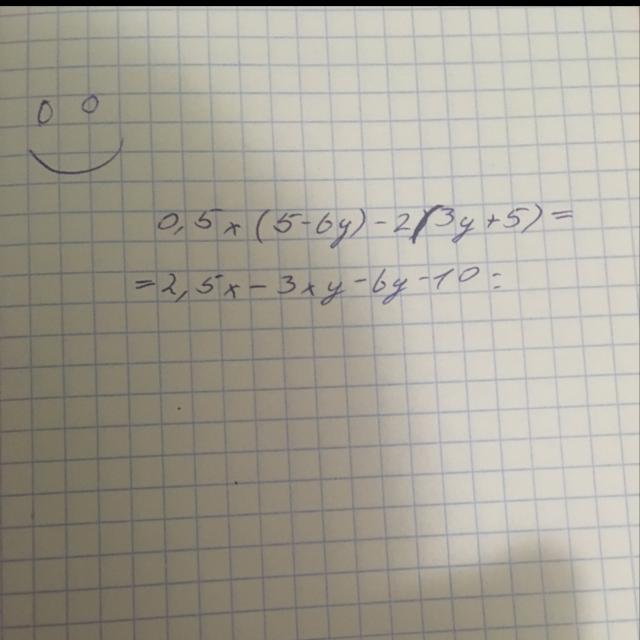 0,5x(5-6y)-2(3y+5)=
=2,5x-3xy-6y-10=